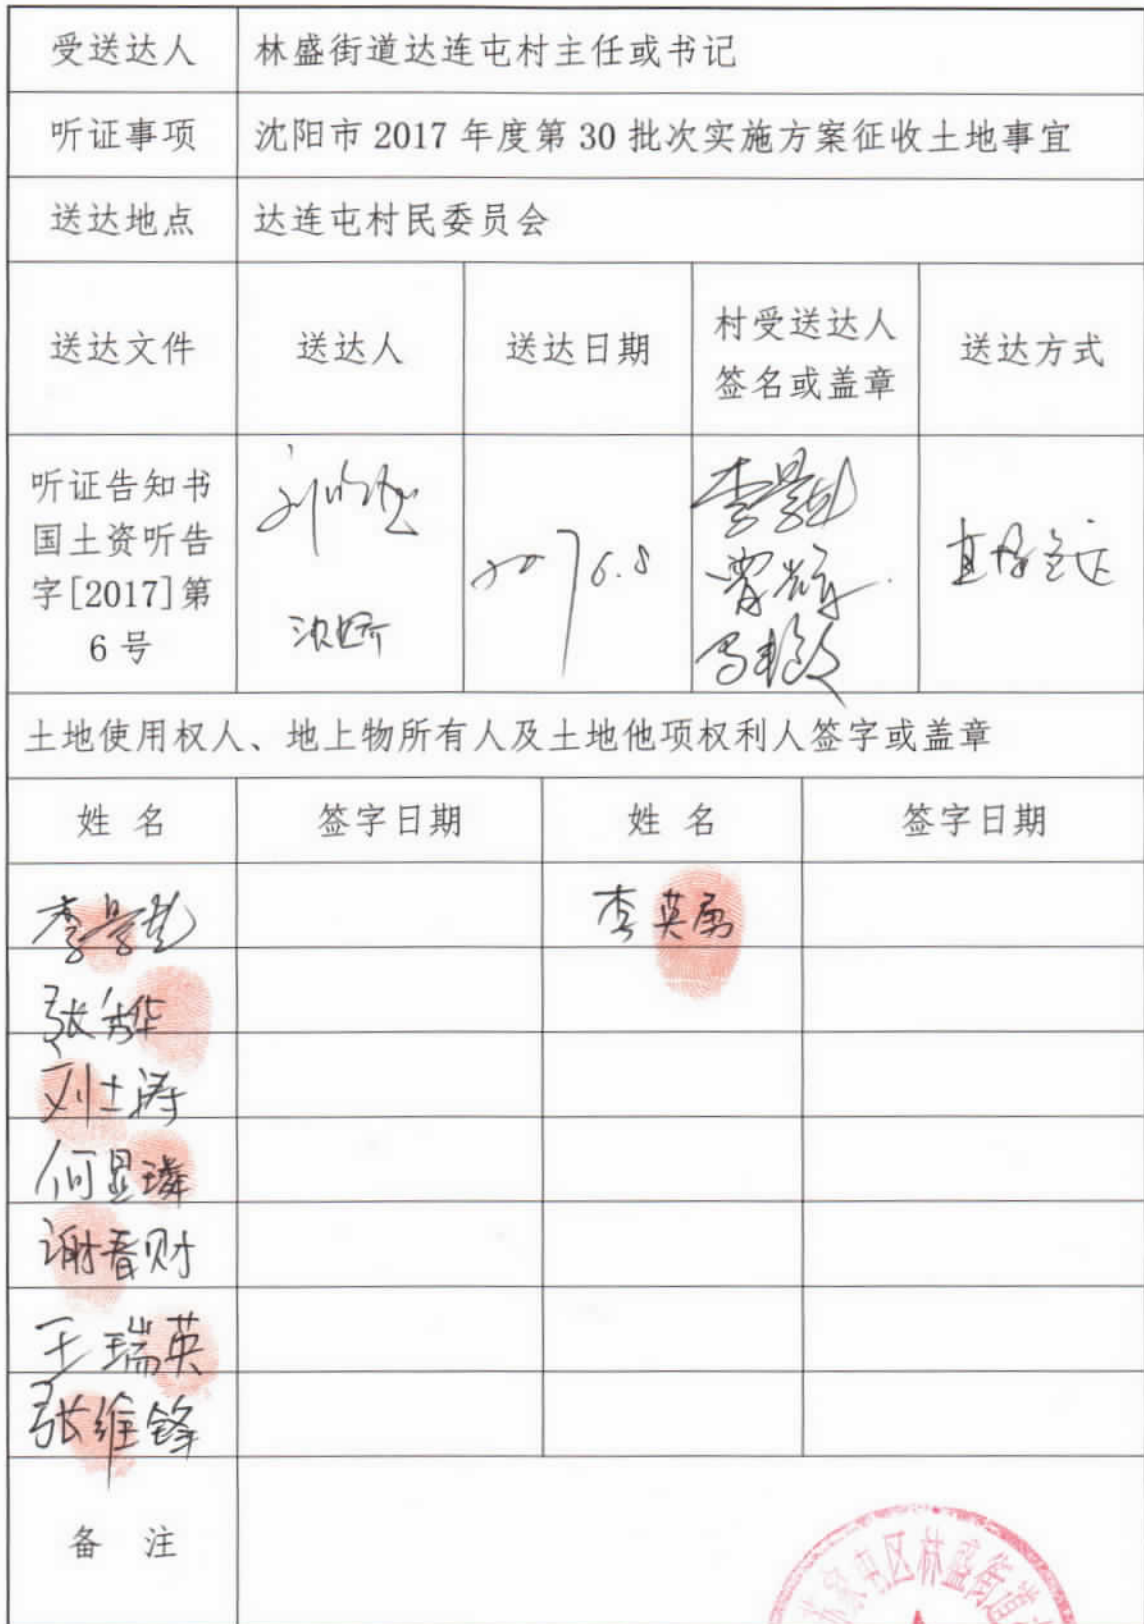 受送达人 林盛街道达连屯村主任或书记
听证事项 沈阳市 2017 年度第 30 批次实施方案征收土地事宜
送达地点 达连屯村民委员会
送达文件 送达人 送达日期 村受送达人 签名或盖章 送达方式
听证告知书
国土资听告
字[2017]第
6 号
2017 6.8
直接送达
土地使用权人、地上物所有人及土地他项权利人签字或盖章
姓 名 签字日期 姓 名 签字日期
张秀华
刘士涛
何显璘
谢春财
王瑞英
张维锋
备 注
屯区林盛街道